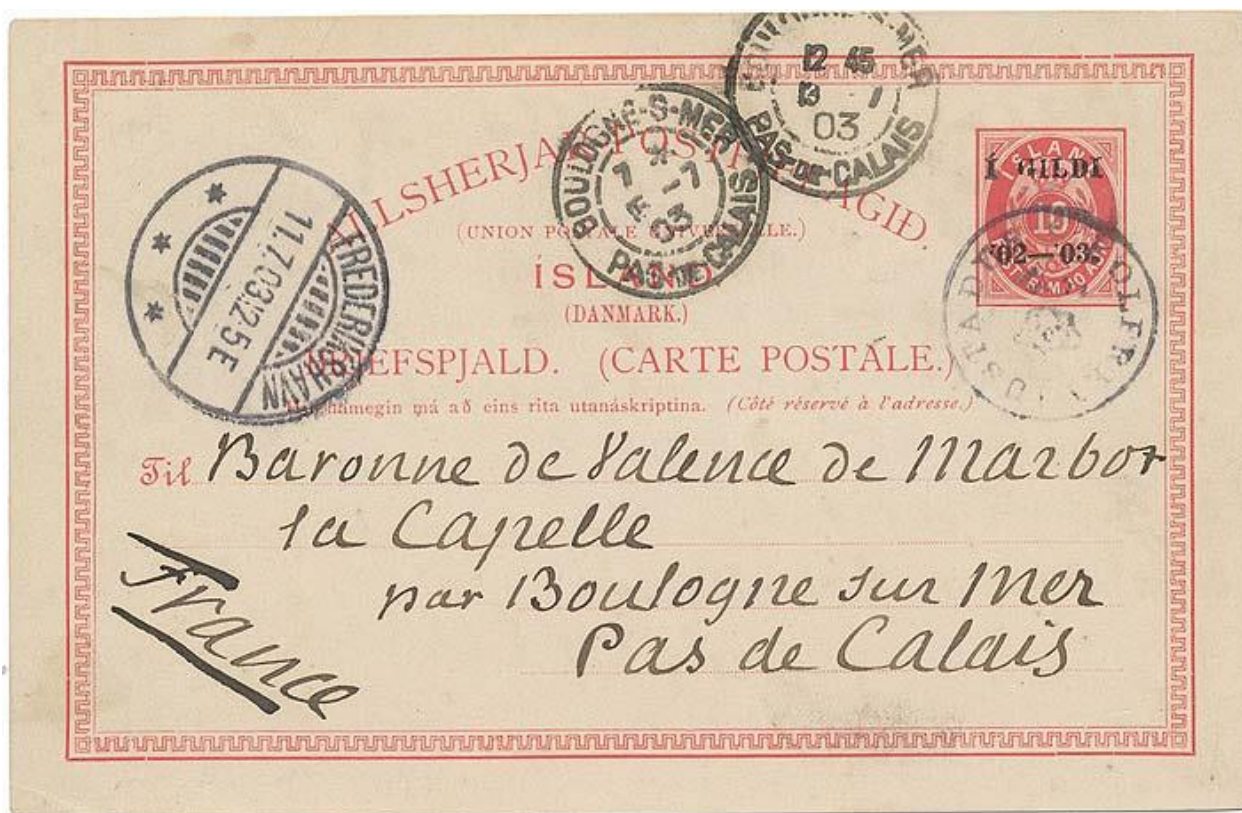 ALLSHERJAR POSTFJELAGIÐ.
(UNION POSTALE UNIVERSELLE.)
ÍSLAND
(DANMARK.)
BRJEFSPJALD. (CARTE POSTALE.)
má að eins rita utanáskriptina. (Côté réservé à l'adresse.)
Til Baronne de Valence de Marbot
la Capelle
par Boulogne sur Mer
Pas de Calais
France
FREDERIKSHAVN
11.7.03 12-5 E
BOULOGNE-S-MER
7 -7
03
PAS-DE-CALAIS
BOULOGNE-S-MER
12 45
03
PAS-DE-CALAIS
ISLAND
Í GILDI
10
'02—'03.